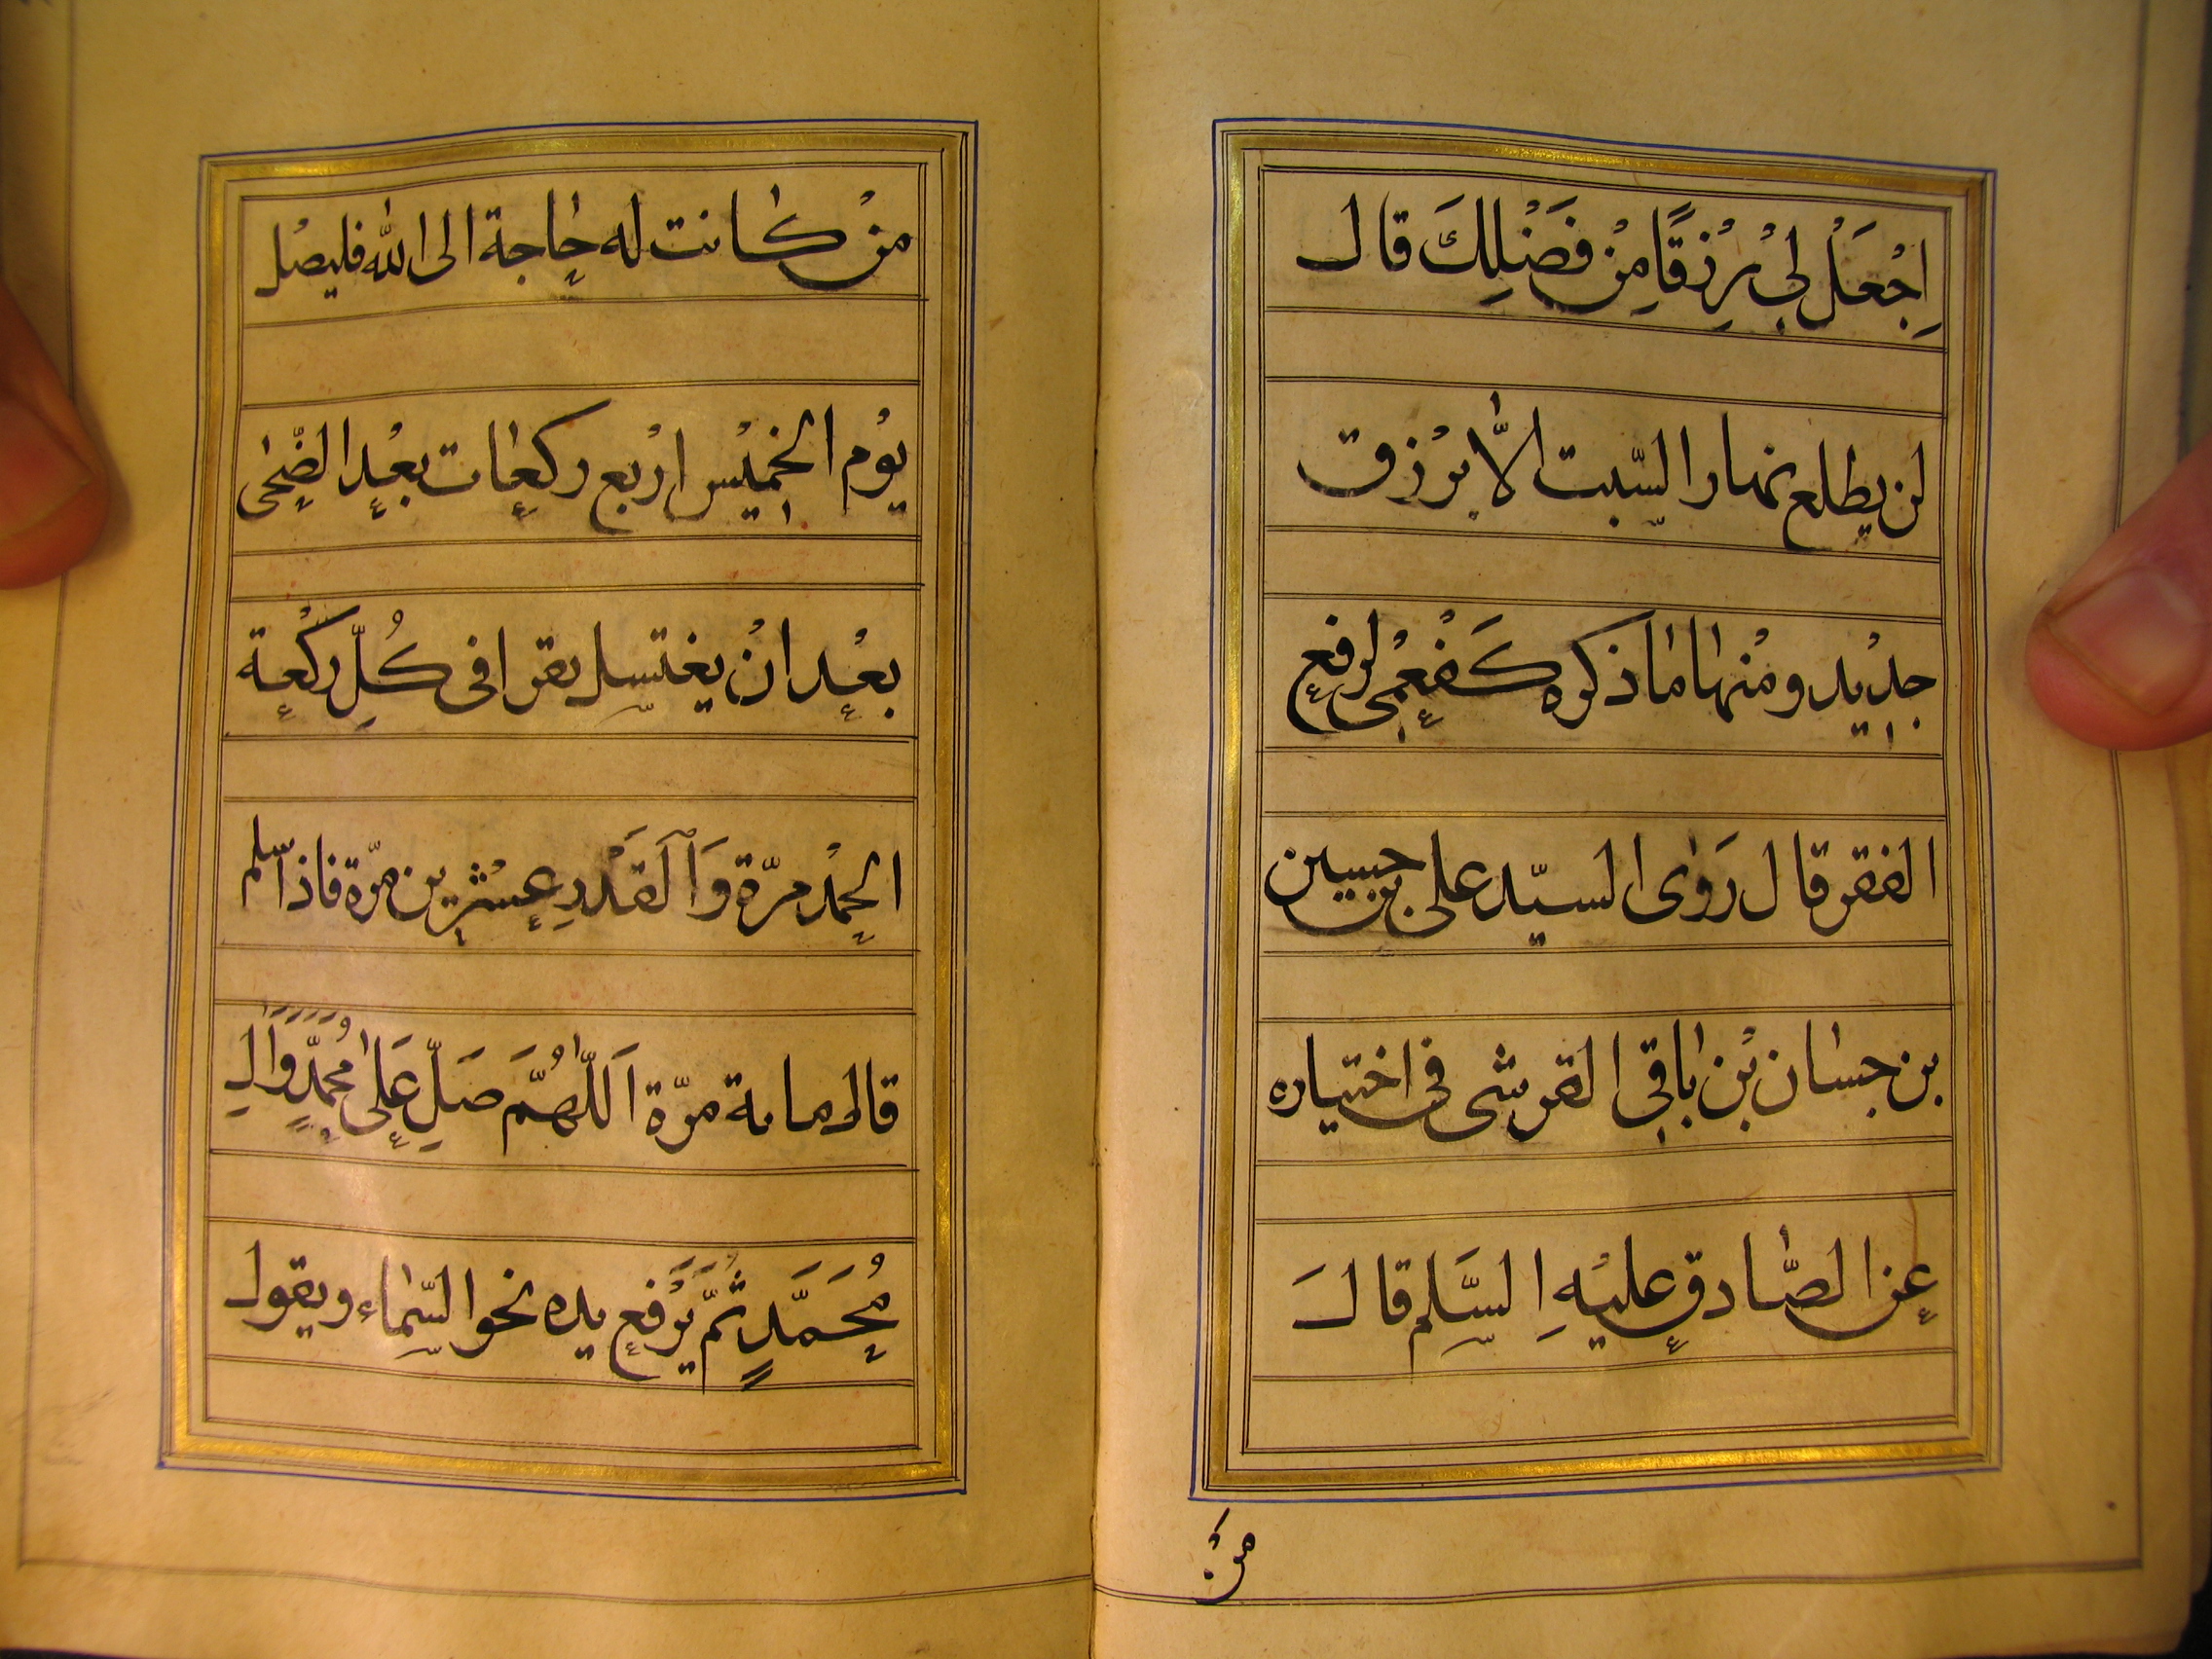 اِجْعَلْ لِیْ رِزْقًا مِنْ فَضْلِكَ قال
لن یطلع نهار السّبت الاّ یرْزق
جدیْد ومنْها ماذكره كَفْعمْی لرفع
الفقر قال رَوٰی السیّد علی بن حسین
بن حسان بْن باقی القرشی فی اختیاره
عن الصّادق علیْهِ السَّلم قالَ
منْ
منْ كانت له حاجة الی الله فلیصْل
یوْم الخمیْس ارْبع ركعات بعْد الضّحی
بعْد انْ یغتسل یقرا فی كُلِّ ركْعة
الحمْد مرّة وَالقَدْرِ عشْرین مرّة فاذا سلم
قال مایة مرّة اَللّهُمَّ صَلِّ عَلی مُحَمَّدٍ وَالِ
مُحَمَّدٍ ثُمَّ یَرْفع یده نحو السّماء ویقول